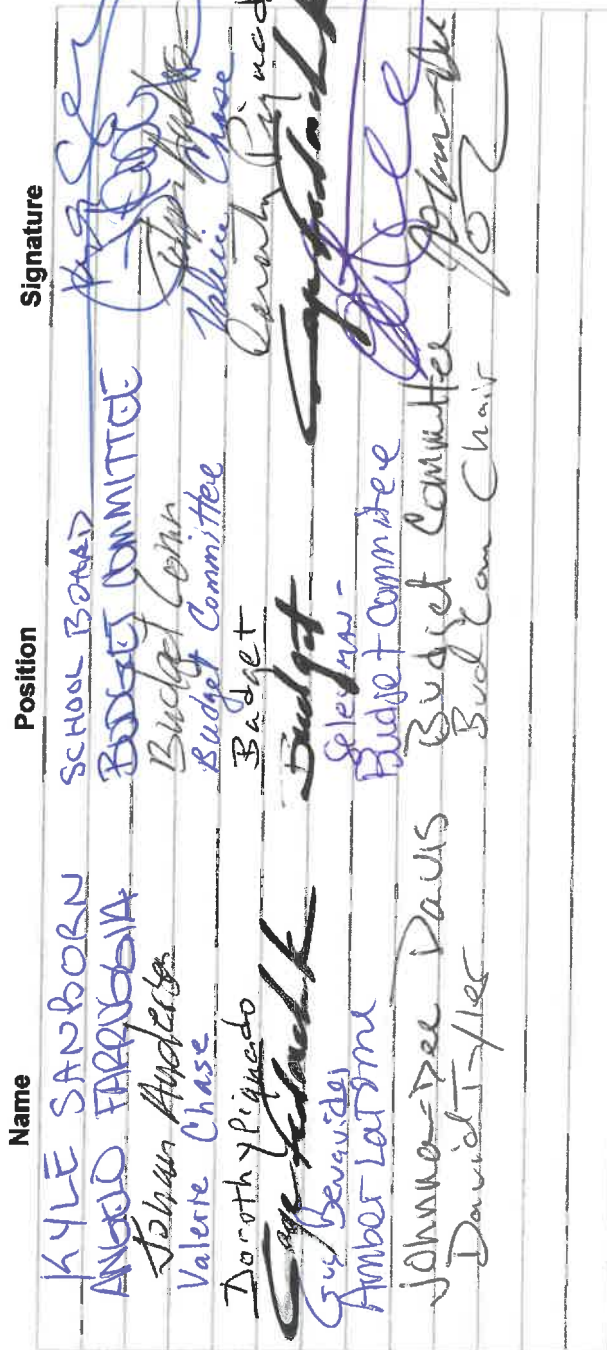 Name Position Signature
KYLE SANBORN SCHOOL BOARD
ANGELO FARRUGGIA BUDGET COMMITTEE
Johan Anderson Budget Comm
Valerie Chase Budget Committee Valerie Chase
Dorothy Pignado Budget Dorothy Pignado
Budget
Guy Benavides Selectman -
Amber LaTorne Budget Committee
Johnna-Dee Davis Budget Committee
David Tyler Bud Com Chair